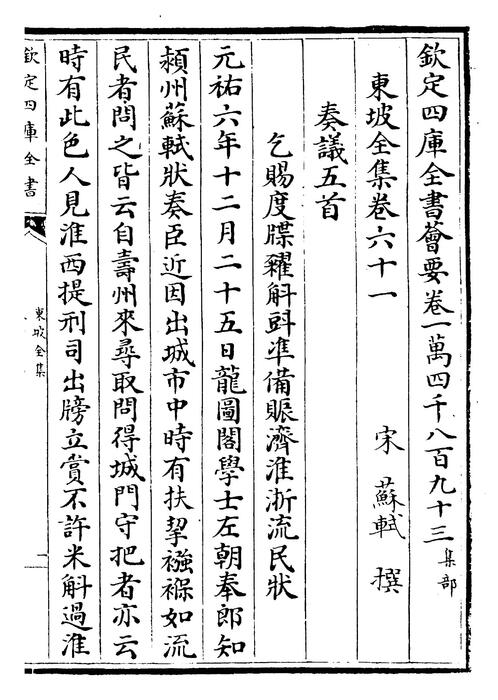 欽定四庫全書薈要卷一萬四千八百九十三 集部
東坡全集卷六十一
宋 蘇軾 撰
奏議五首
乞賜度牒糴斛㪷凖備賑濟淮浙流民狀
元祐六年十二月二十五日龍圖閣學士左朝奉郎知
潁州蘇軾狀奏臣近因出城市中時有扶挈襁褓如流
民者問之皆云自壽州來尋取問得城門守把者亦云
時有此色人見淮西提刑司出牓立賞不許米斛過淮
欽定四庫全書
東坡全集
一